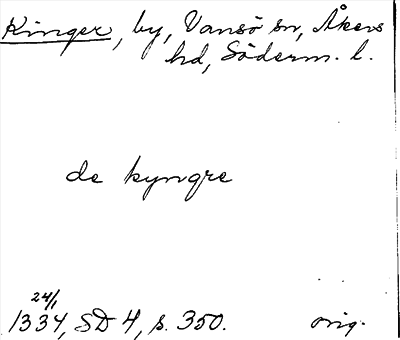 Kinger, by, Vansö sn, Åkers
hd, Söderm. l.
de kyngre
24/1
1334, SD 4, s. 350. orig.